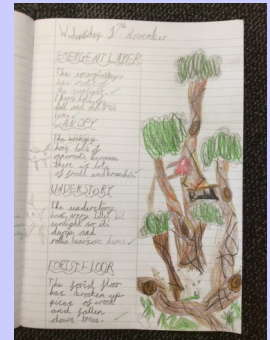 Wednesday 1st November
EMERGENT LAYER
The emergent layer
has most of
the sunlight.
tall and
CANOPY
The canopy
has lots of
animals because
there is lots
of fruit and
UNDERSTORY
The understory
has very little bit
sunlight so its
damp and
rotten leaves
FOREST FLOOR
The forist floor
has broken up
pices of wood
and fallen
down trees.